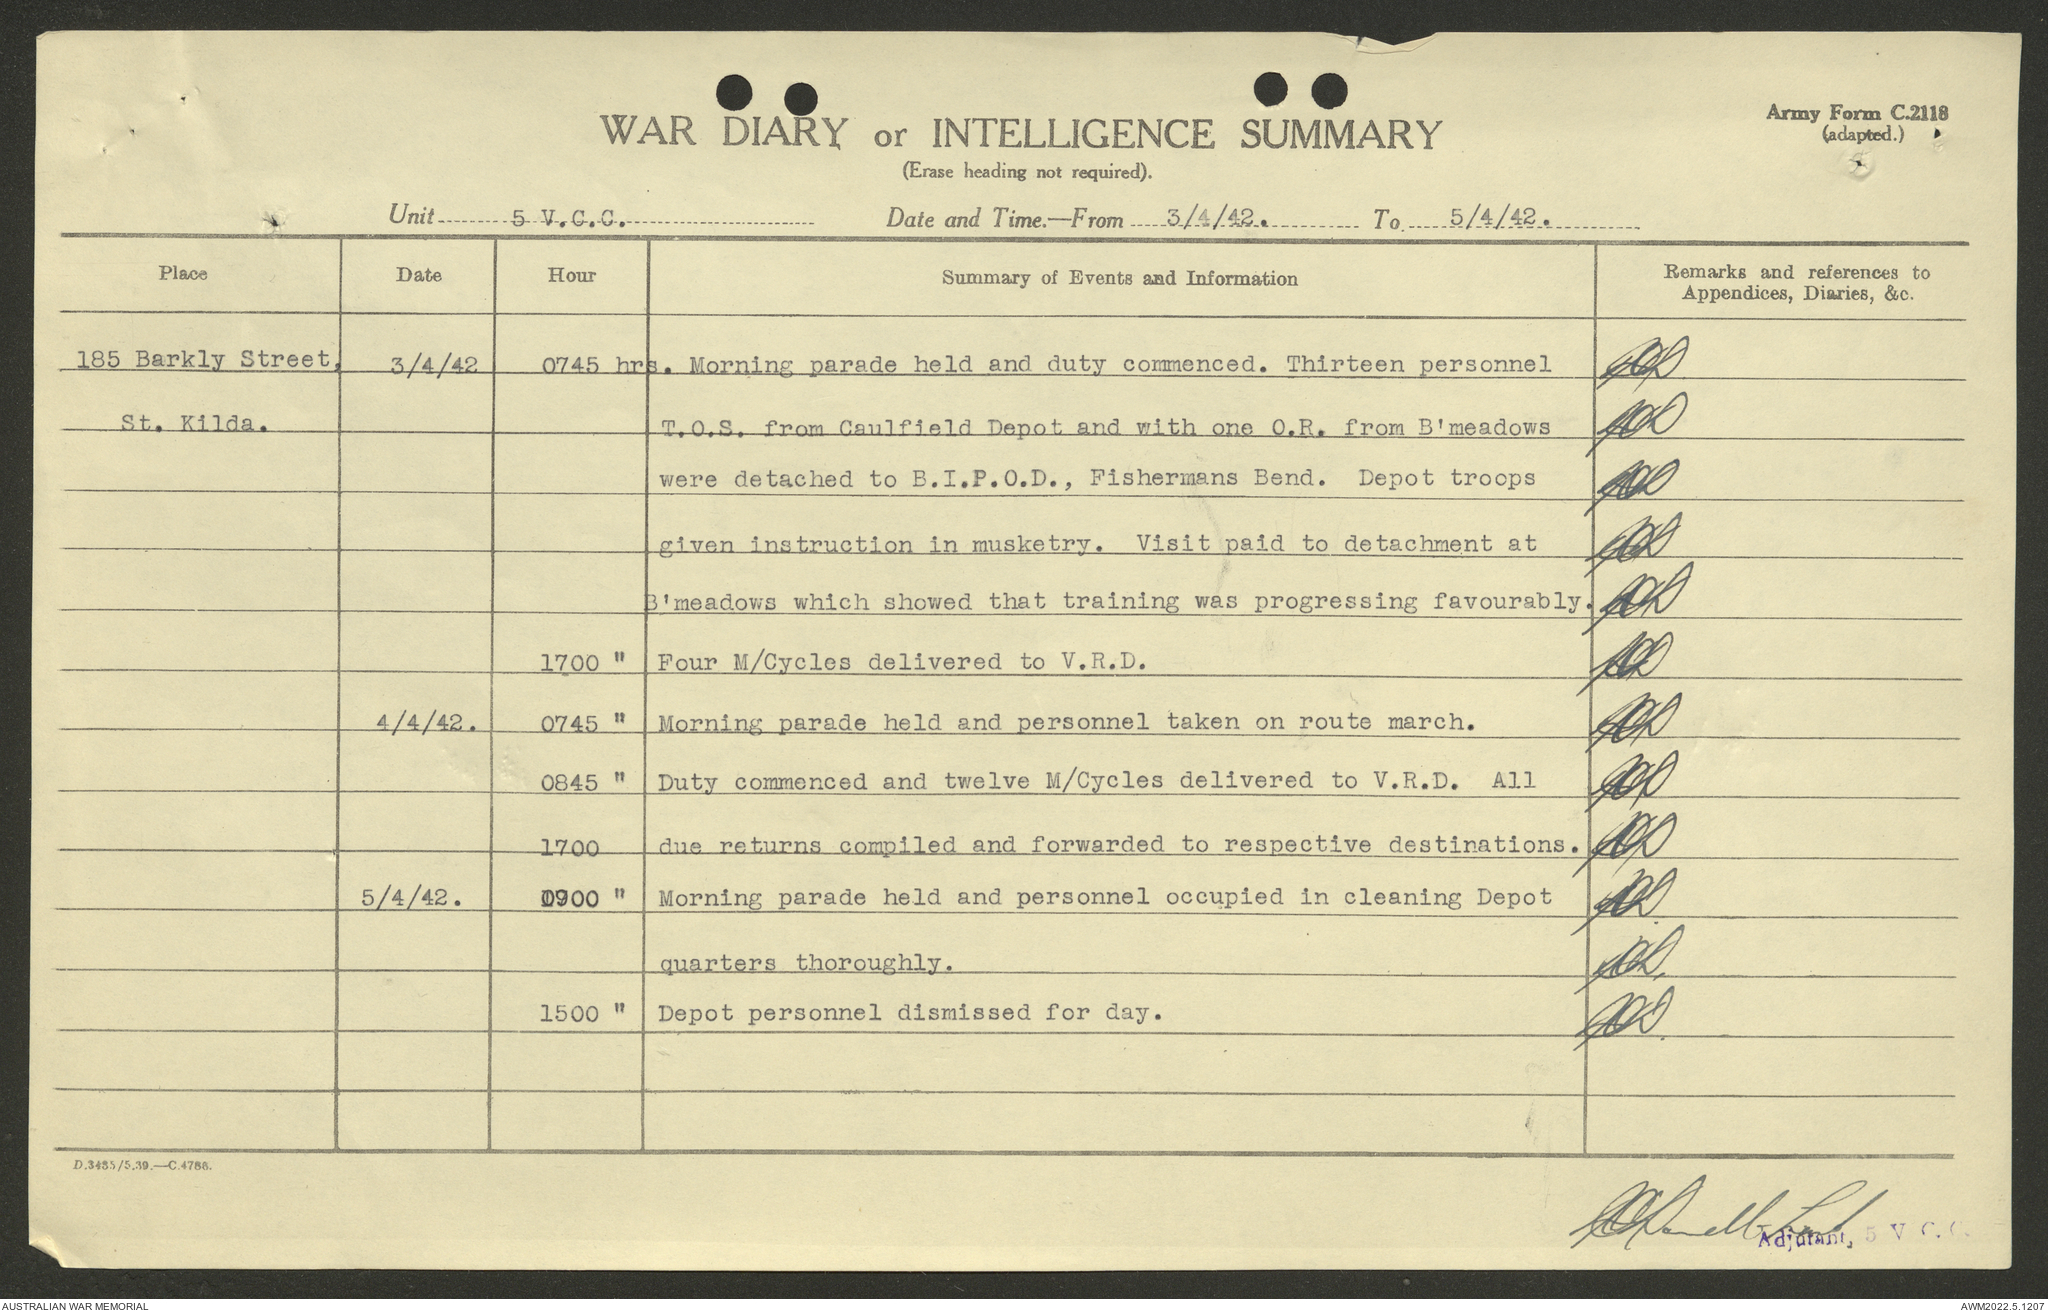 WAR DIARY or INTELLIGENCE SUMMARY
Army Form C.2118
(adapted.)
(Erase heading not required).
Unit 5 V.C.C. Date and Time.—From 3/4/42. To 5/4/42.
Place Date Hour Summary of Events and Information Remarks and references to
Appendices, Diaries, &c.
185 Barkly Street, 3/4/42 0745 hrs. Morning parade held and duty commenced. Thirteen personnel
St. Kilda. T.O.S. from Caulfield Depot and with one O.R. from B'meadows
were detached to B.I.P.O.D., Fishermans Bend. Depot troops
given instruction in musketry. Visit paid to detachment at
B'meadows which showed that training was progressing favourably.
1700 " Four M/Cycles delivered to V.R.D.
4/4/42. 0745 " Morning parade held and personnel taken on route march.
0845 " Duty commenced and twelve M/Cycles delivered to V.R.D. All
1700 due returns compiled and forwarded to respective destinations.
5/4/42. 0900 " Morning parade held and personnel occupied in cleaning Depot
quarters thoroughly.
1500 " Depot personnel dismissed for day.
D.3485/5.39.—C.4788.
Adjutant, 5 V.C.C.
AUSTRALIAN WAR MEMORIAL AWM2022.5.1207